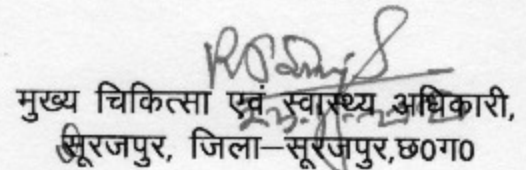 मुख्य चिकित्सा एवं स्वास्थ्य अधिकारी,
सूरजपुर, जिला–सूरजपुर,छ0ग0